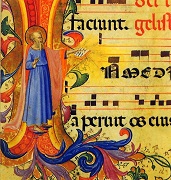 faciunt. gelist
AMED
aperuit os eius